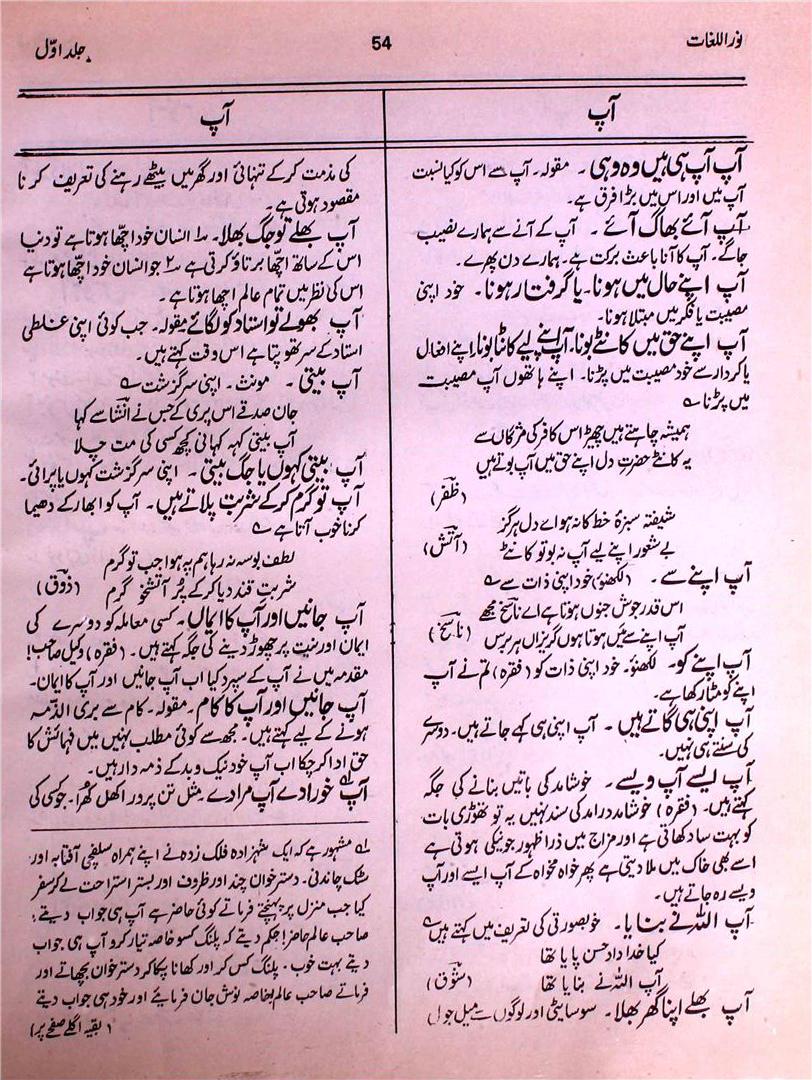 نوراللغات
54
جلد اوّل
آپ
آپ آپ ہی ہیں وہ وہی ۔ مقولہ۔ آپ سے اس کو کیا نسبت
آپ میں اور اس میں بڑا فرق ہے۔
آپ آئے بھاگ آئے ۔ آپ کے آنے سے ہمارے نصیب
جاگے۔ آپ کا آنا باعث برکت ہے۔ ہمارے دن پھرے۔
آپ اپنے حال میں ہونا۔ یا گرفتار ہونا۔ خود اپنی
مصیبت یا فکر میں مبتلا ہونا۔
آپ اپنے حق میں کانٹے بونا۔ آپ اپنے لیے کانٹا بونا۔ اپنے افعال
یا کردار سے خود مصیبت میں پڑنا۔ اپنے ہاتھوں آپ مصیبت
میں پڑنا ؎
ہمیشہ چاہتے ہیں چھیڑ اس کافر کی مژگاں سے
یہ کانٹے حضرتِ دل اپنے حق میں آپ بوتے ہیں
(ظفر)
شیفتہ سبزۂ خط کا نہ ہو اے دل ہرگز
بے شعور اپنے لیے آپ نہ بو تو کانٹے (آتش)
آپ اپنے سے ۔ (لکھنؤ) خود اپنی ذات سے ؎
اس قدر جوش جنوں ہونا ہے اے ناسخ مجھے
آپ اپنے سے میں ہوتا ہوں گریزاں ہر برس (ناسخ)
آپ اپنے کو۔ لکھنؤ۔ خود اپنی ذات کو (فقرہ) تم نے آپ
اپنے کو مٹا رکھا ہے۔
آپ اپنی ہی گاتے ہیں ۔ آپ اپنی ہی کہے جاتے ہیں۔ دوسرے
کی سنتے ہی نہیں۔
آپ ایسے آپ ویسے ۔ خوشامد کی باتیں بنانے کی جگہ
کہتے ہیں۔ (فقرہ) خوشامد درامد کی سند نہیں یہ تو تھوڑی بات
کو بہت سا دکھاتی ہے اور مزاج میں ذرا ظہور جو نیکی ہوتی ہے
اسے بھی خاک میں ملا دیتی ہے پھر خواہ مخواہ کے آپ ایسے اور آپ
ویسے رہ جاتے ہیں۔
آپ اللہ نے بنایا۔ خوبصورتی کی تعریف میں کہتے ہیں ؎
کیا خداداد حسن پایا تھا
آپ اللہ نے بنایا تھا (شوق)
آپ بھلے اپنا گھر بھلا۔ سوسائٹی اور لوگوں سے میل جول
آپ
کی مذمت کر کے تنہائی اور گھر میں بیٹھے رہنے کی تعریف کرنا
مقصود ہوتی ہے۔
آپ بھلے تو جگ بھلا۔ ۱؎ انسان خود اچھا ہوتا ہے تو دنیا
اس کے ساتھ اچھا برتاؤ کرتی ہے ۲؎ جو انسان خود اچھا ہوتا ہے
اس کی نظر میں تمام عالم اچھا ہوتا ہے۔
آپ بھولے تو استاد کو لگائے مقولہ۔ جب کوئی اپنی غلطی
استاد کے سر تھوپتا ہے اس وقت کہتے ہیں۔
آپ بیتی ۔ مونث۔ اپنی سرگزشت ؎
جان صدقے اس پری کے جس نے انشا سے کہا
آپ بیتی کہہ کہانی کچھ کسی کی مت چلا
آپ بیتی کہوں یا جگ بیتی ۔ اپنی سرگزشت کہوں یا پرائی۔
آپ تو گرم کر کے شربت پلاتے ہیں۔ آپ کو ابھار کے دھیما
کرنا خوب آتا ہے ؎
لطف بوسہ نہ رہا ہم پہ ہوا جب تو گرم
شربتِ قند دیا کر کے پُر آتشخو گرم (ذوق)
آپ جانیں اور آپ کا ایماں۔ کسی معاملہ کو دوسرے کی
ایمان اور نیت پر چھوڑ دینے کی جگہ کہتے ہیں۔ (فقرہ) وکیل صاحب!
مقدمہ میں نے آپ کے سپرد کیا اب آپ جانیں اور آپ کا ایمان۔
آپ جانیں اور آپ کا کام ۔ مقولہ۔ کام سے بری الذمہ
ہونے کے لیے کہتے ہیں۔ مجھ سے کوئی مطلب نہیں میں فہمائش کا
حق ادا کر چکا اب آپ خود نیک و بد کے ذمہ دار ہیں۔
آپ خورادے آپ مرادے۔ مثل تن پرور اکھل کھُرا۔ جو کسی کی
۱؎ مشہور ہے کہ ایک شہزادہ فلک زدہ نے اپنے ہمراہ سلفچی آفتابہ اور
مشک چاندنی۔ دسترخوان چند اور ظروف اور بستر استراحت لے کر سفر
کیا جب منزل پر پہنچتے فرماتے کوئی حاضر ہے آپ ہی جواب دیتے،
صاحب عالم حاضر! حکم دیتے کہ پلنگ کسو خاصہ تیار کرو آپ ہی جواب
دیتے بہت خوب۔ پلنگ کس کر اور کھانا پکا کر دسترخوان بچھاتے اور
فرماتے صاحب عالم! خاصہ نوش جان فرمایئے اور خود ہی جواب دیتے
(بقیہ اگلے صفحے پر)